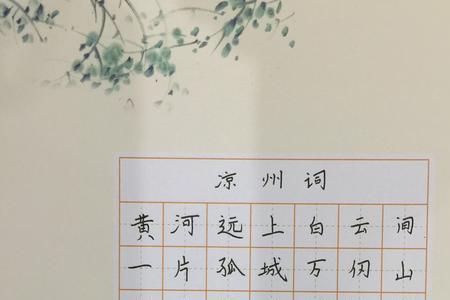 凉州词
黄河远上白云间
一片孤城万仞山